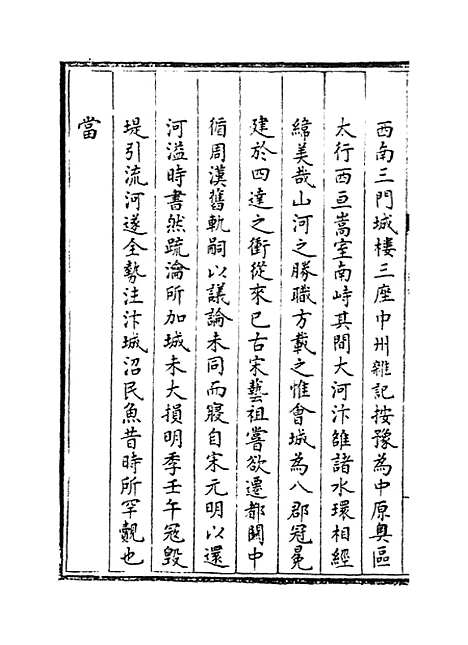 西南三門城樓三座中州雜記按豫為中原奥區
太行西亘嵩室南峙其間大河汴雒諸水環相經
緯美哉山河之勝職方載之惟會城為八郡冠冕
建於四達之衝從來已古宋藝祖嘗欲遷都關中
循周漢舊軌嗣以議論未同而寢自宋元明以還
河溢時書然疏瀹所加城未大損明季壬午冦毁
堤引流河遂全勢注汴城沼民魚昔時所罕覩也
當